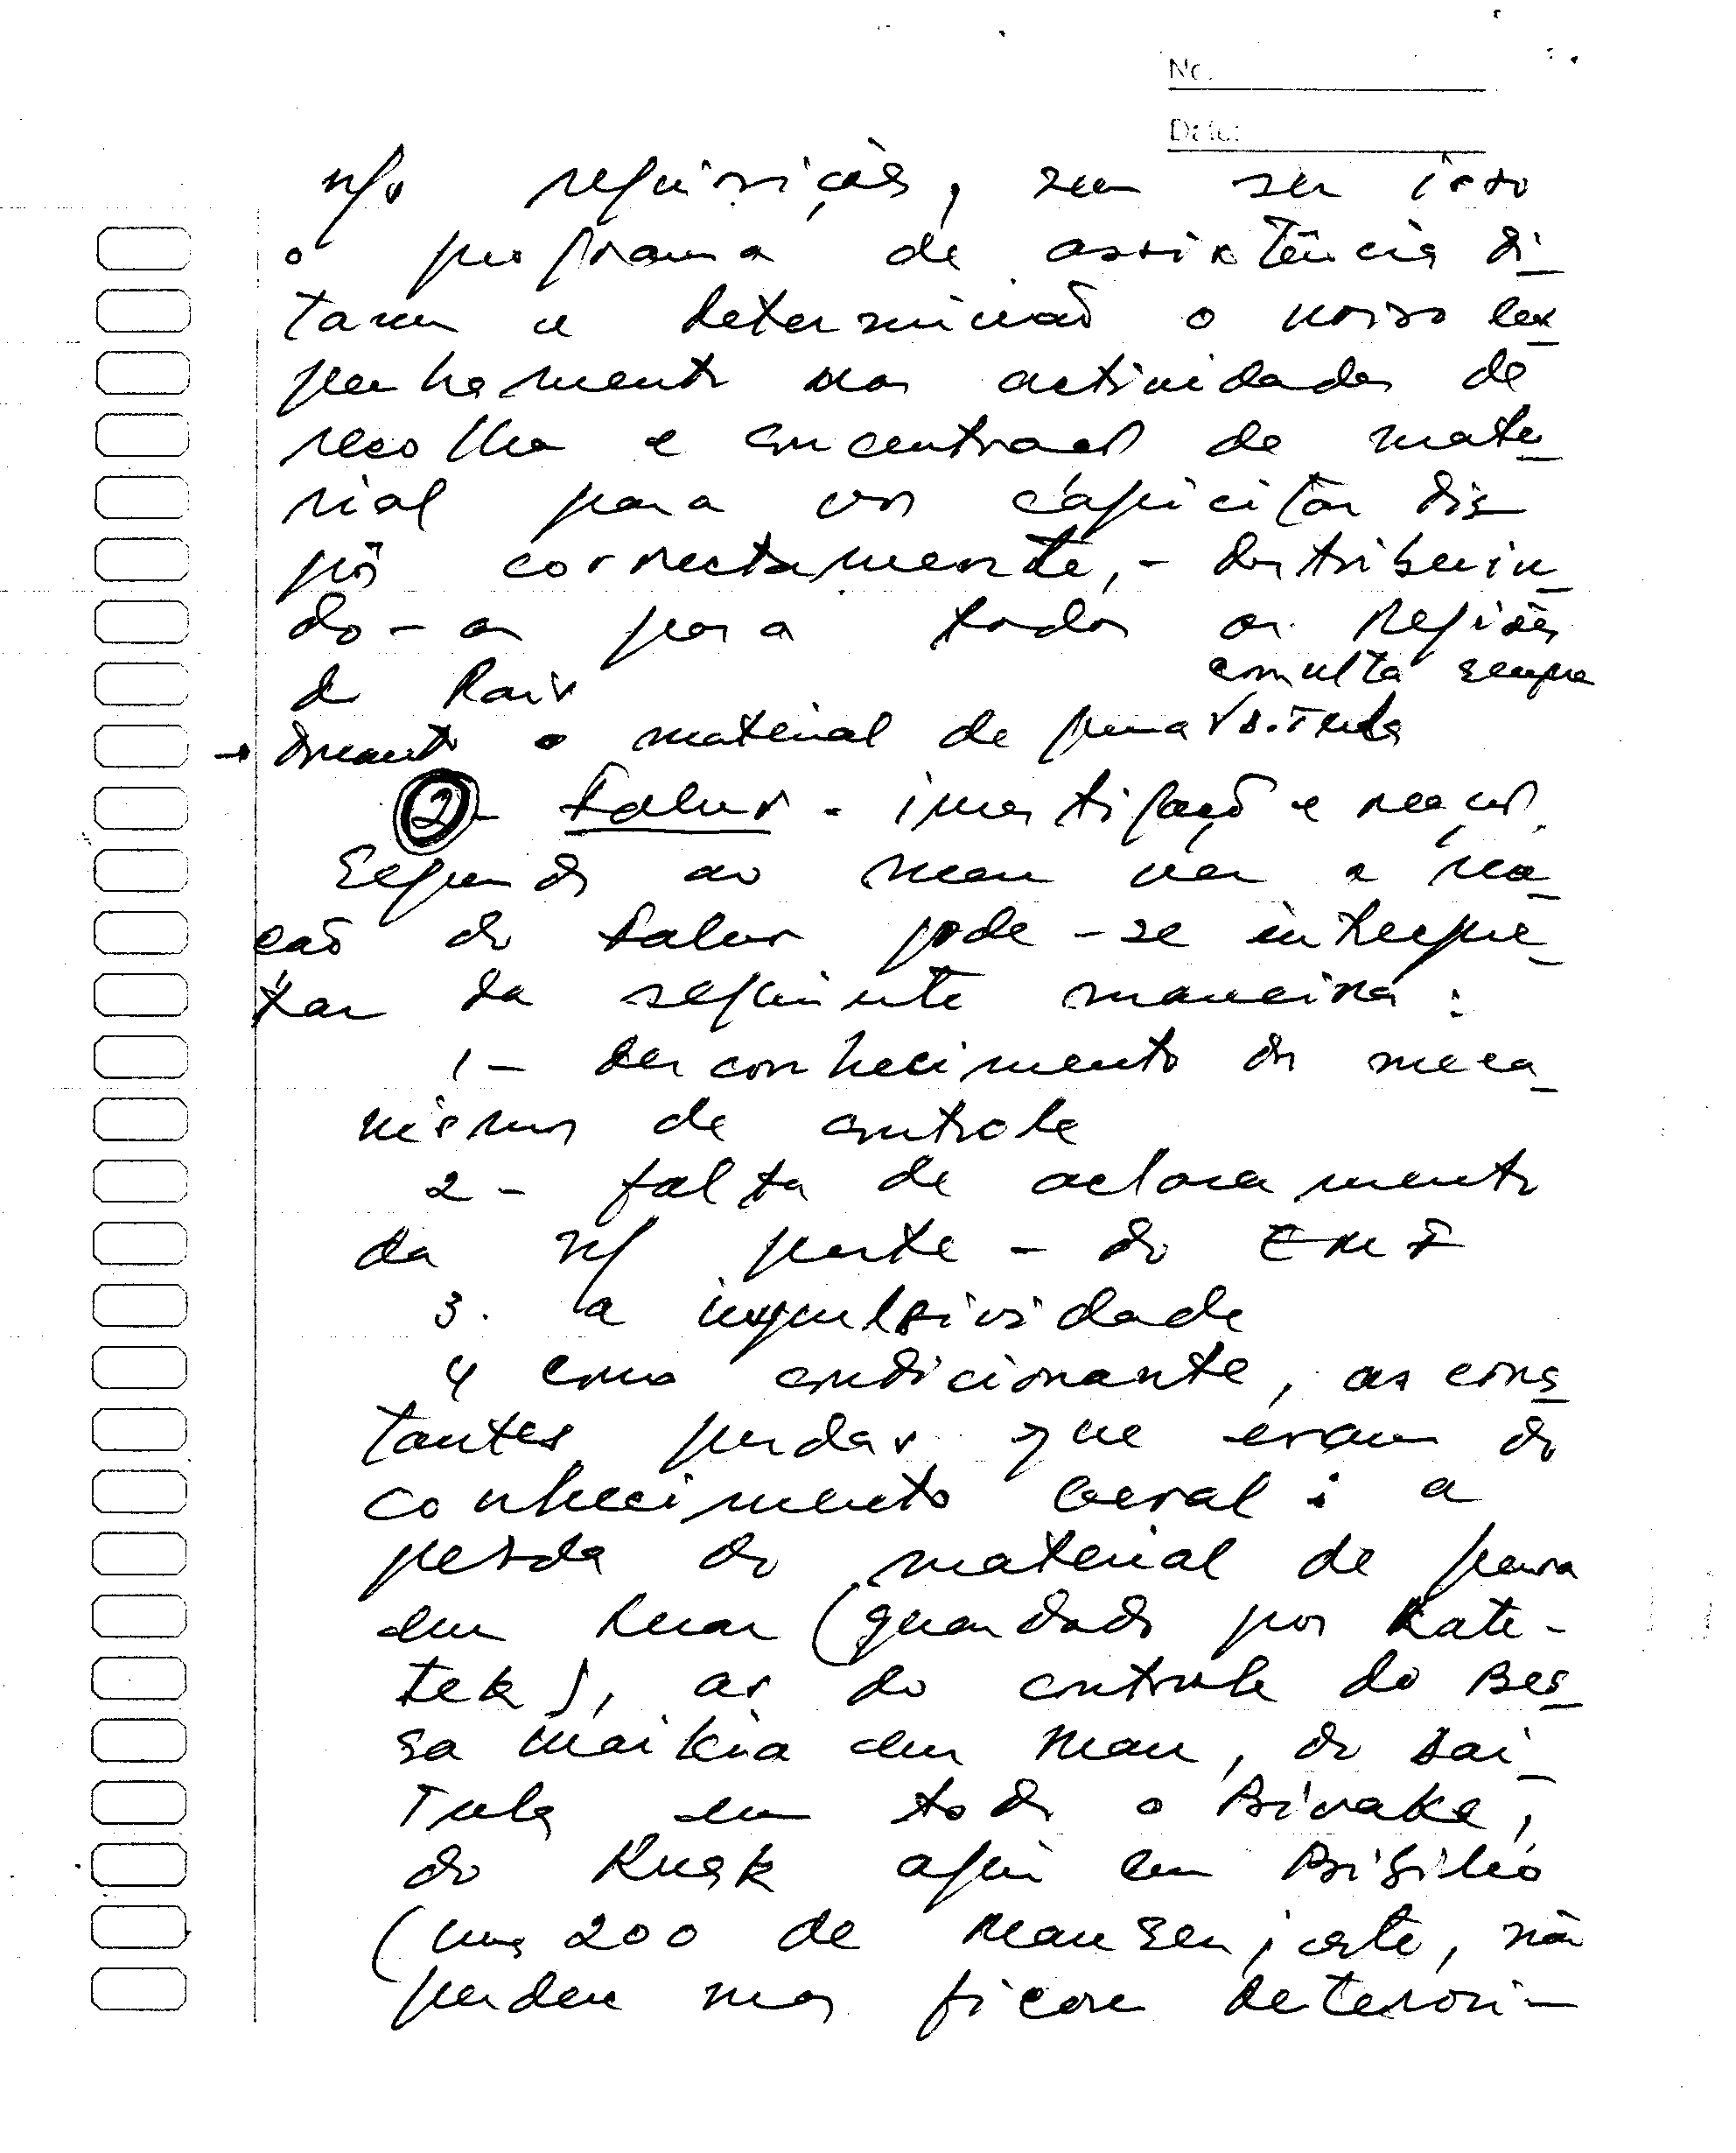 No.
Date:
n/s requisições, sem ser isso
o programa de assistência di-
taram e determinaō o nosso
penhamento nas actividades de
recolha e concentraçaō de mate-
rial para vos capicitar dis-
pôr correctamente, - distribuin-
do-as para todas as Regiões
do País
consulta sempre
→ Quanto o material de guerra √ S. Tula
② - Falur - investigaçaō e reacçaō
Segundo ao meu ver a rea-
çaō do Falur pode-se interpre-
tar da seguinte maneira:
1 - desconhecimento do meca-
nismos de controle
2 - falta de aclaramento
da n/ parte - do EMF
3. a impulsividade
4 como condicionante, as cons-
tantes perdas que eram do
conhecimento Geral: a
perda do material de guerra
em (guardado por Kate-
tek), as do controle do Bes-
sa Maikia em , do Sai-
Tula em todo o Bivake,
do Kuak aqui em Bibileo
(uns 200 de Mauser, este, não
perdeu mas ficou deteriori-